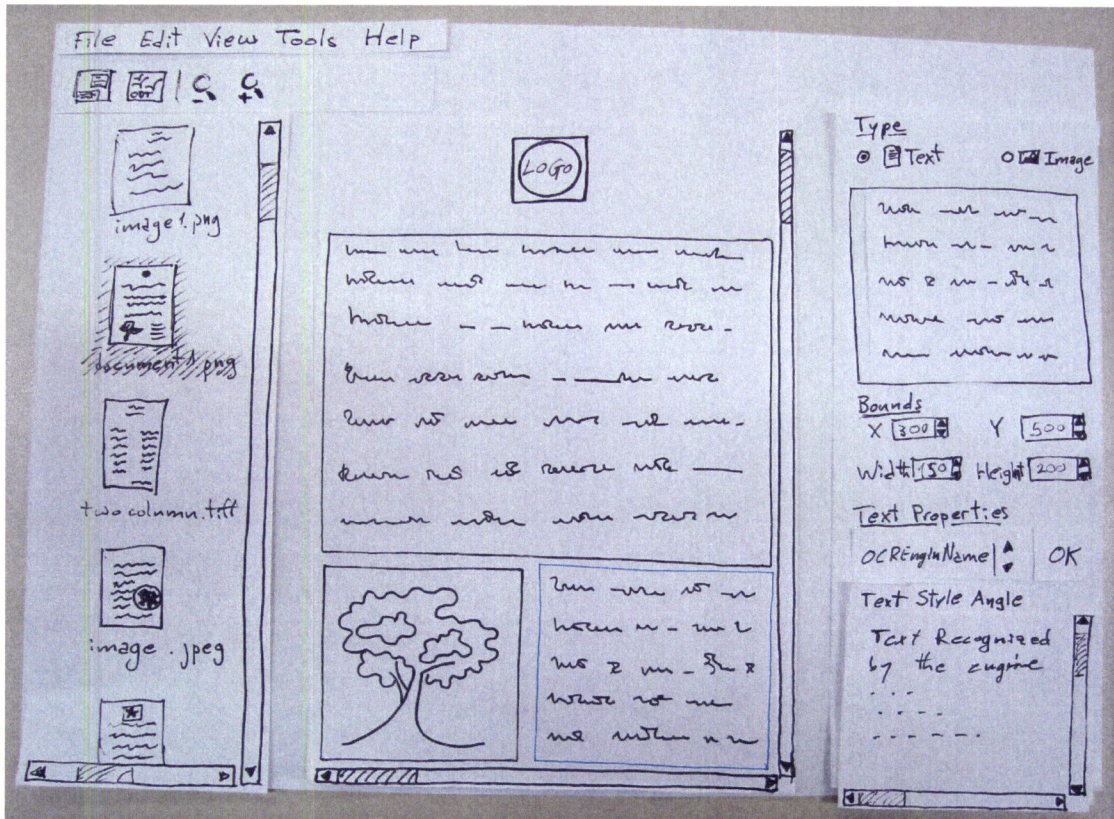 File Edit View Tools Help
image1.png
document1.png
two column.tiff
image .jpeg
LOGO
Type
Text Image
Bounds
X 300 Y 500
Width 150 Height 200
Text Properties
OCREnginName OK
Text Style Angle
Text Recognized
by the engine
. . .
- - - -
- - - - - -